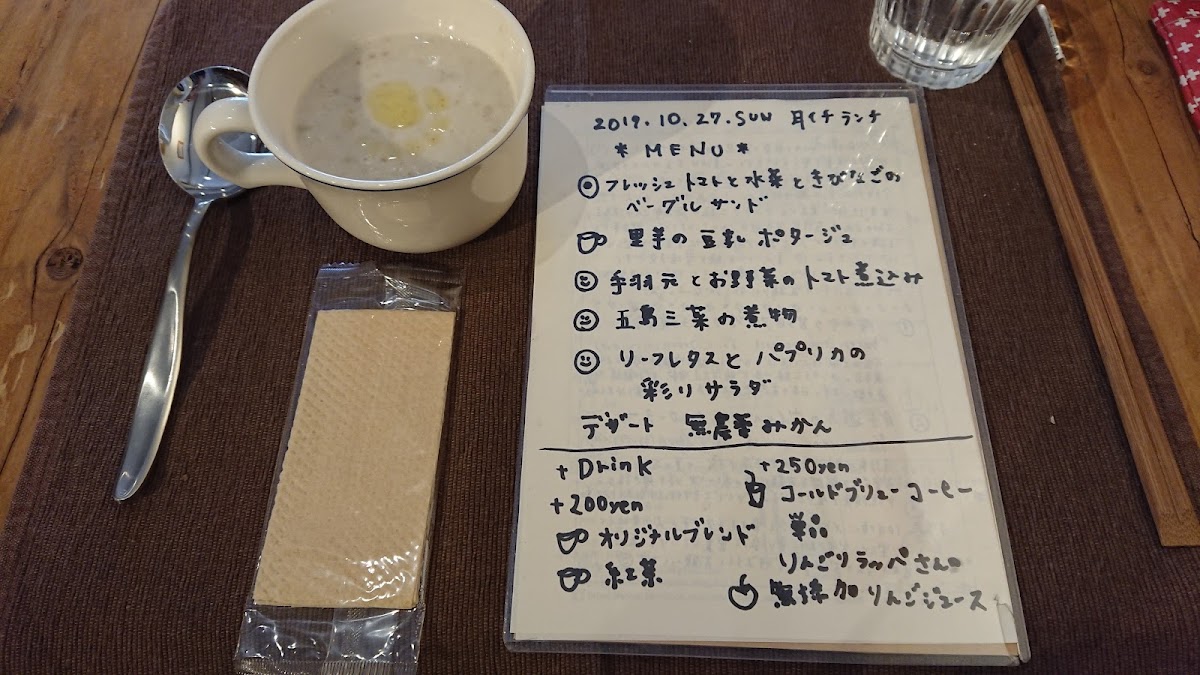 2019.10.27.SUN ランチ
* MENU *
フレッシュトマトと水菜ときびなごの
ベーグルサンド
里芋の豆乳ポタージュ
手羽元とお野菜のトマト煮込み
五島三菜の煮物
リーフレタスとパプリカの
彩りサラダ
デザート 無農薬みかん
+Drink
+200yen
オリジナルブレンド
紅茶
+250yen
コールドブリューコーヒー
単品
りんごりラッパさんの
無添加りんごジュース